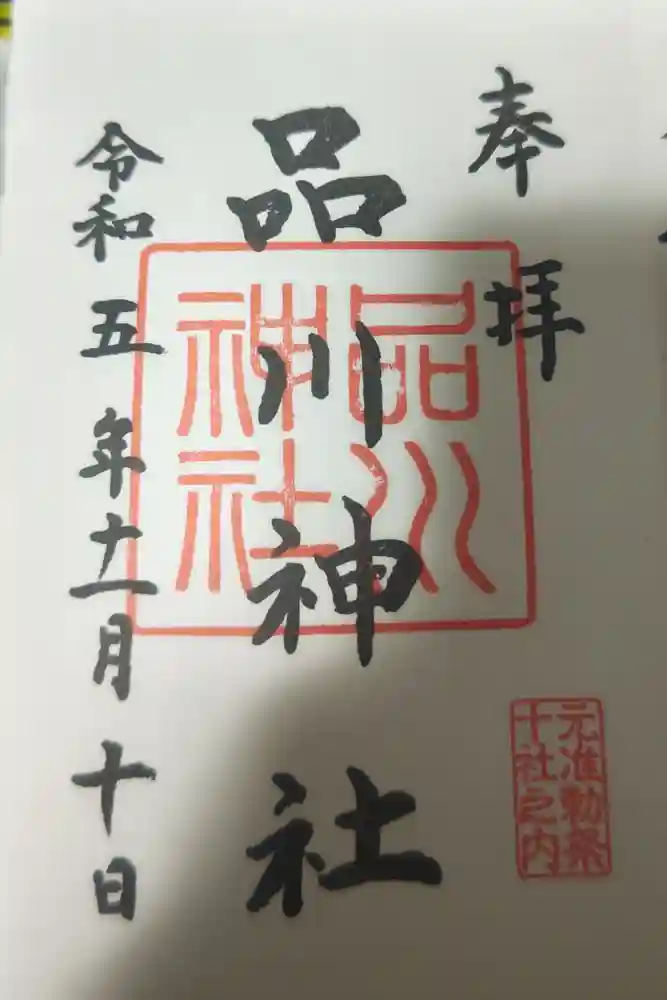 奉拝
元准勅祭
十社之内
品川神社
品川
神社
令和五年十一月十日